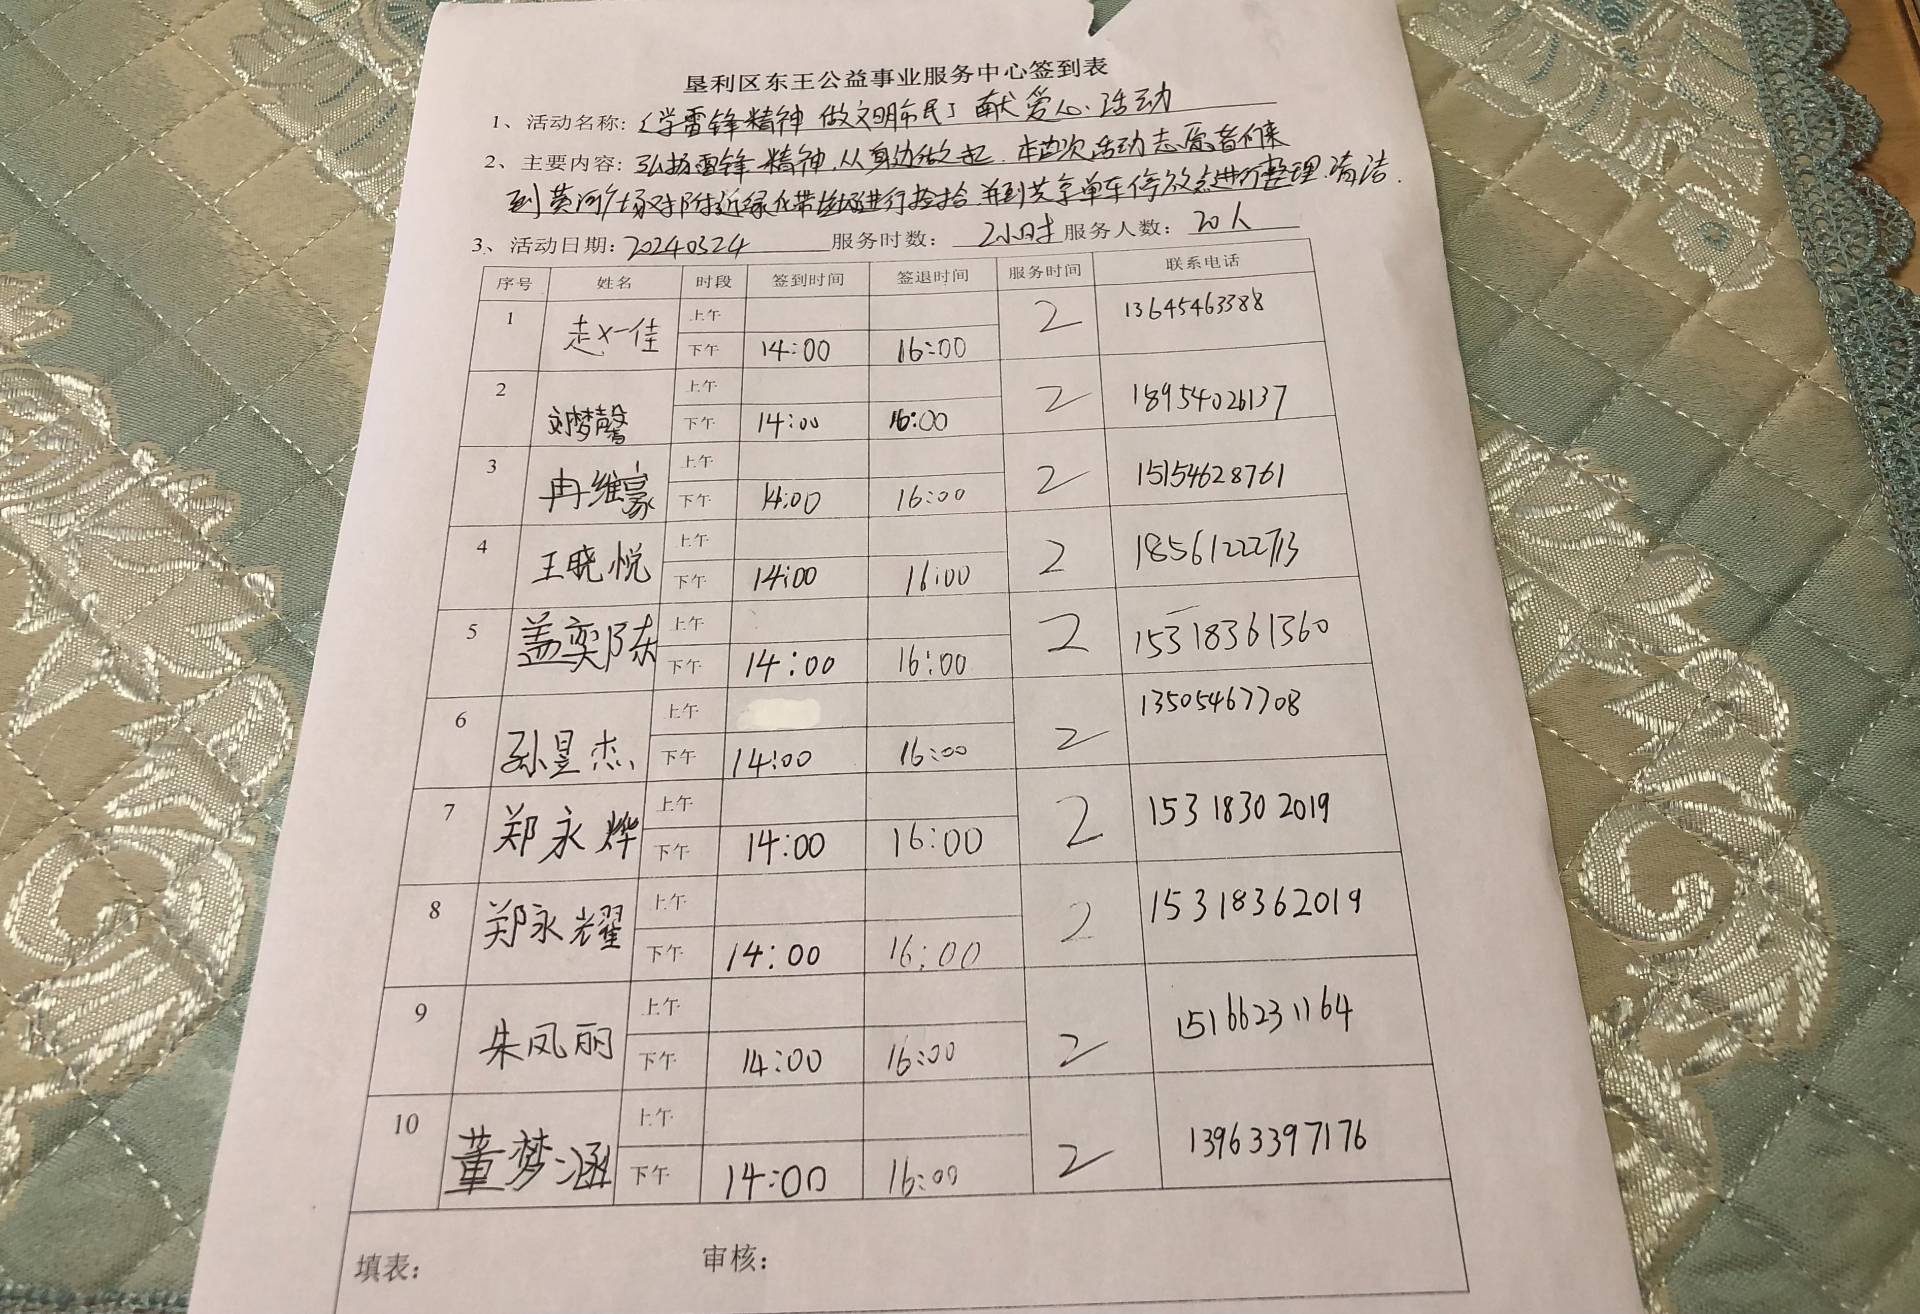 垦利区东王公益事业服务中心签到表
1、活动名称：《学雷锋精神 做文明市民》献爱心活动
2、主要内容：弘扬雷锋精神，从身边做起，本次活动志愿者们来
到黄河广场附近绿化带垃圾进行捡拾，并到共享单车停放点进行整理清洁.
3、活动日期：20240324 服务时数：2小时 服务人数：20人
序号 姓名 时段 签到时间 签退时间 服务时间 联系电话
1 赵一佳 上午 2 13645463388
下午 14:00 16:00
2 刘梦馨 上午 2 18954026137
下午 14:00 16:00
3 冉维豪 上午 2 15154628761
下午 14:00 16:00
4 王晓悦 上午 2 18561222713
下午 14:00 16:00
5 盖奕陈 上午 2 15318361360
下午 14:00 16:00
6 孙昱杰 上午 2 13505467708
下午 14:00 16:00
7 郑永烨 上午 2 15318302019
下午 14:00 16:00
8 郑永耀 上午 2 15318362019
下午 14:00 16:00
9 朱凤丽 上午 2 15166231164
下午 14:00 16:00
10 董梦涵 上午 2 13963397176
下午 14:00 16:00
填表： 审核：